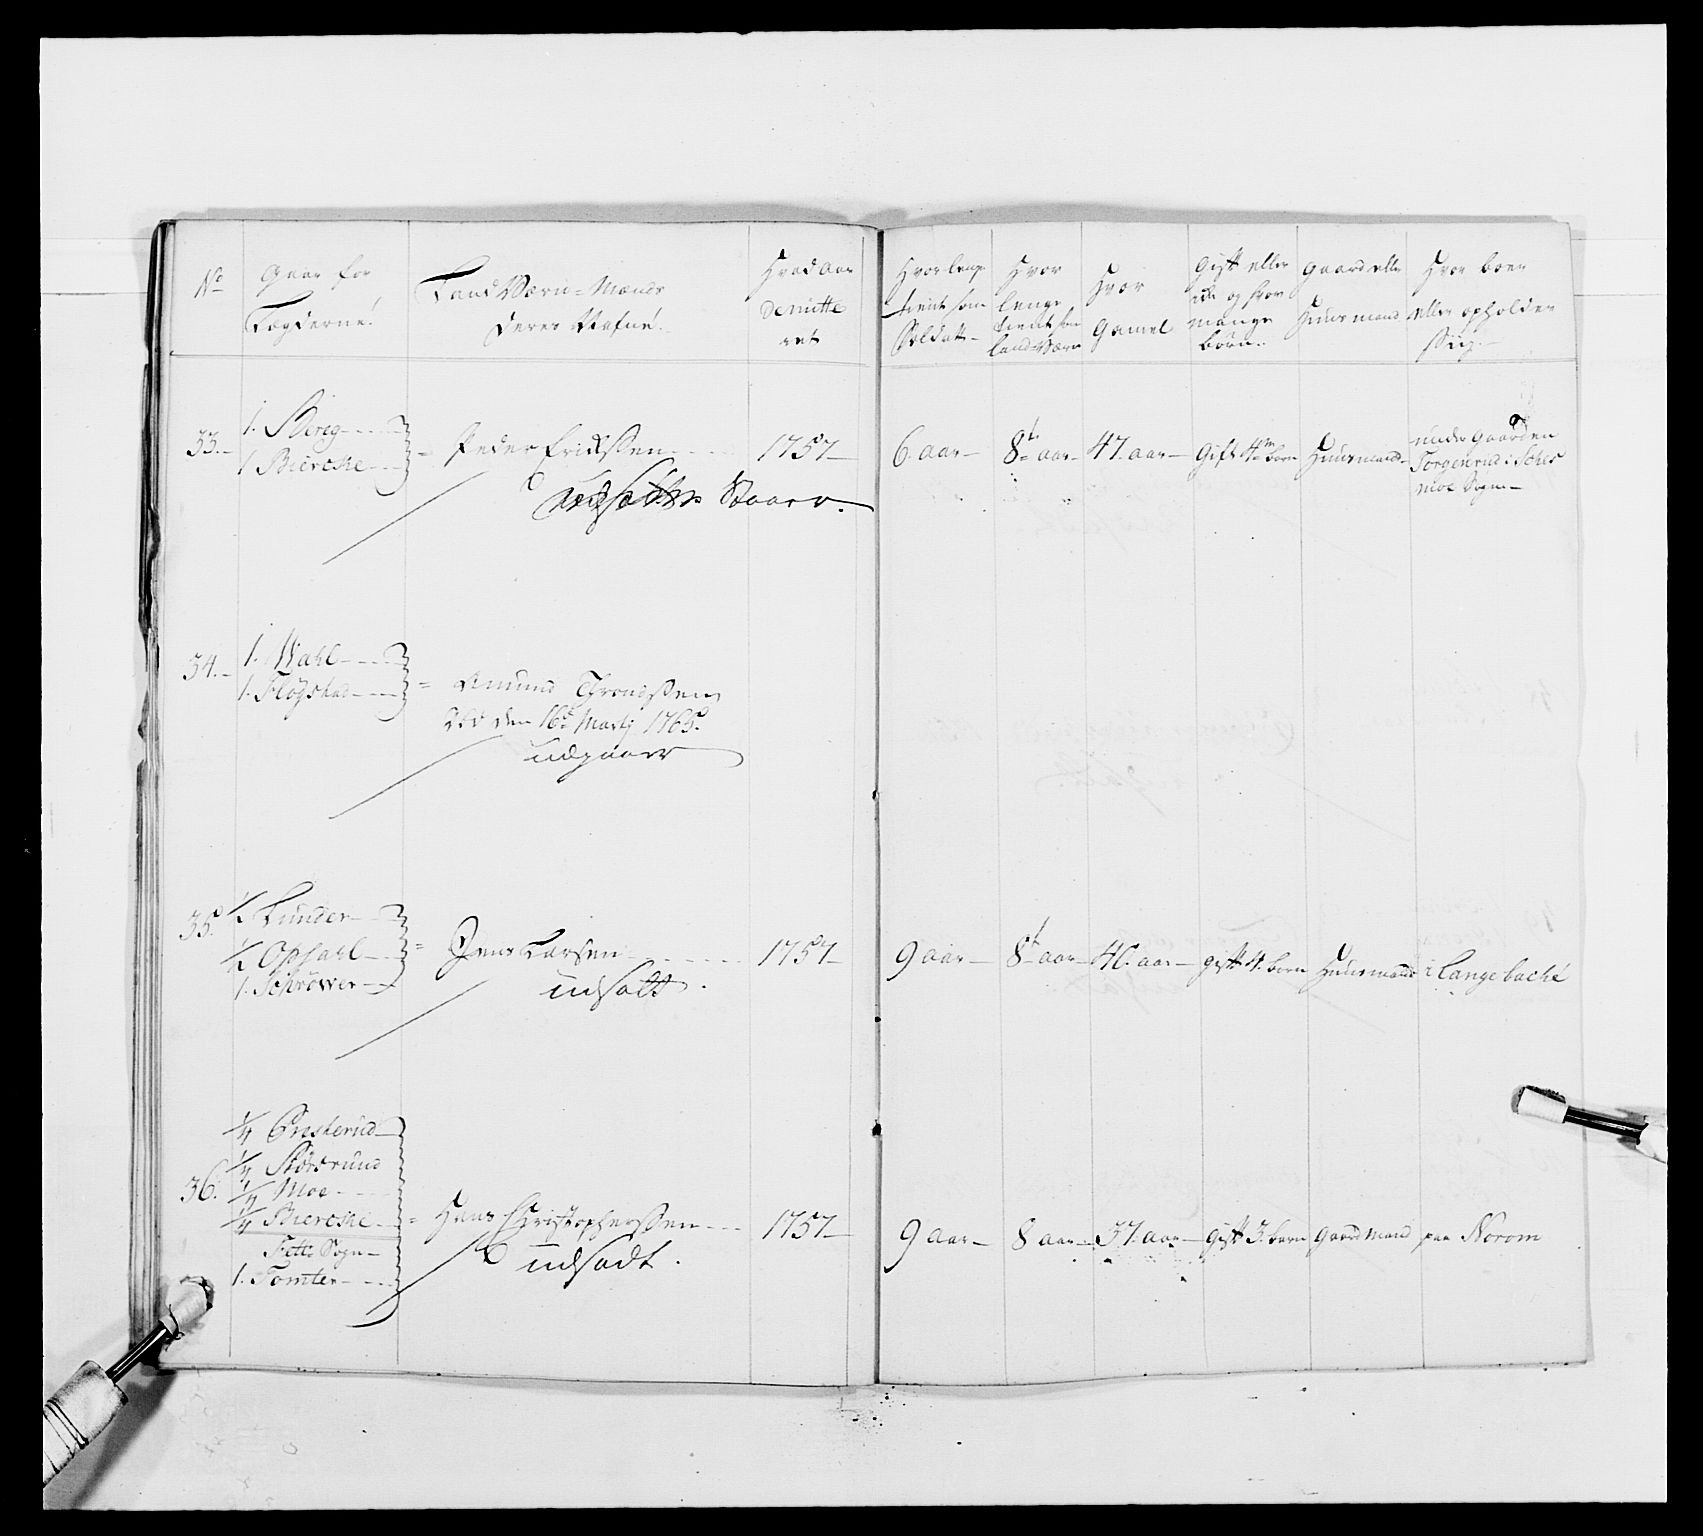 No
Gaar for
Lægderne.
Land Værn-Mænds
deres Nafne.
Hvad Aar
de mitte
ret
Hvor lenge
tient som
Soldat
Hvor
lenge
tient som
land Værn
Hvor
Gamel
Gift eller
ide og hvor
mange
børn
Gaard eller
Huusmand
Hvor boer
eller opholder
Siig.
33.
1. Bereg
1. Biercke
Peder Erichssen
1757
6. aar
8te aar
47. aar
Gift 4 børn
Huusmand
under Gaarden
Torgenrud i Sches
moe Sogn
udsatt
34.
1. Wahl
1. Fløgstad
Amund Throndssen
død den 16de Martij 1765.
udgaaer
35.
1/2 Lunder
1/2 Opsahl
1. Schrøwer
Jens Larsen
1757
9 aar
8t aar
40. aar
gift 4. børn
Huusmand
i Langebache
udsatt.
36.
1/4 Presterud
1/4 Størsrund
1/4 Moe
1/4 Biercke
Fette Sogn
1. Tomter
Hans Christophersen
1757
9 aar
8 aar
37. aar
gift 3. børn
gaardmand
paa Norom
udsadt.